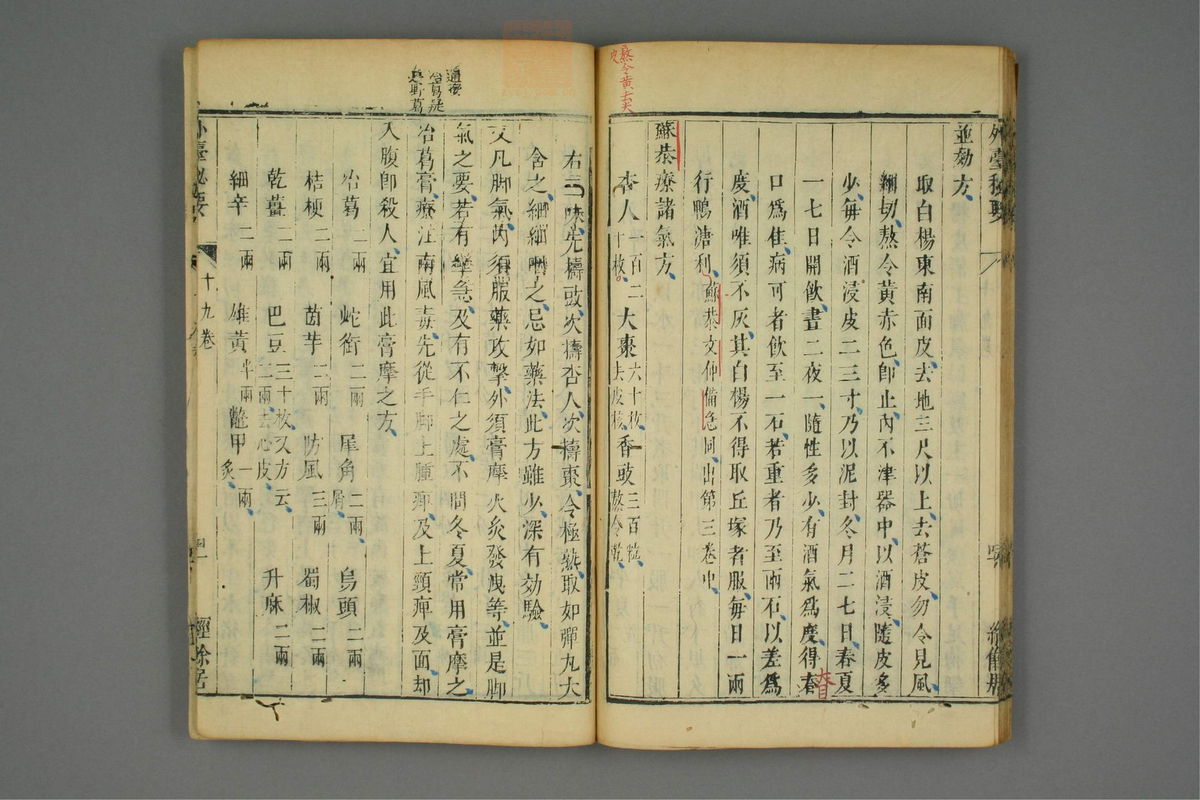 並効方
取白楊東南面皮去地三尺以上去蒼皮勿令見風
細切熬令黃赤色即止內不津器中以酒浸隨皮多
少每令酒浸皮二三寸乃以泥封冬月二七日春夏
一七日開飲晝二夜一隨性多少有酒氣為度得春
口為佳病可者飲至一石若重者乃至兩石以差為
度酒唯須不灰其白楊不得取丘塚者服每日一兩
行鴨溏利蘇恭文仲備急同出第三卷中
蘇恭療諸氣方
杏人一百二十枚 大棗六十枚去皮核 香豉三百粒熬令乾
熬令黃去尖皮
右三味先擣豉次擣杏人次擣棗令極熟取如彈丸大
含之細細嚥之忌如藥法此方雖少深有効驗
又凡脚氣內須服藥攻擊外須膏摩火灸發洩等並是脚
氣之要若有攣急及有不仁之處不問冬夏常用膏摩之
冶葛膏療江南風毒先從手脚上腫痺及上頸痺及面却
入腹即殺人宜用此膏摩之方
冶葛二兩 蛇銜二兩 犀角二兩屑 烏頭二兩
桔梗二兩 茵芋二兩 防風三兩 蜀椒二兩
乾薑二兩 巴豆三十枚又方云二兩去心皮 升麻二兩
細辛二兩 雄黃半兩 鼈甲一兩炙
外臺秘要 十九卷 經餘居